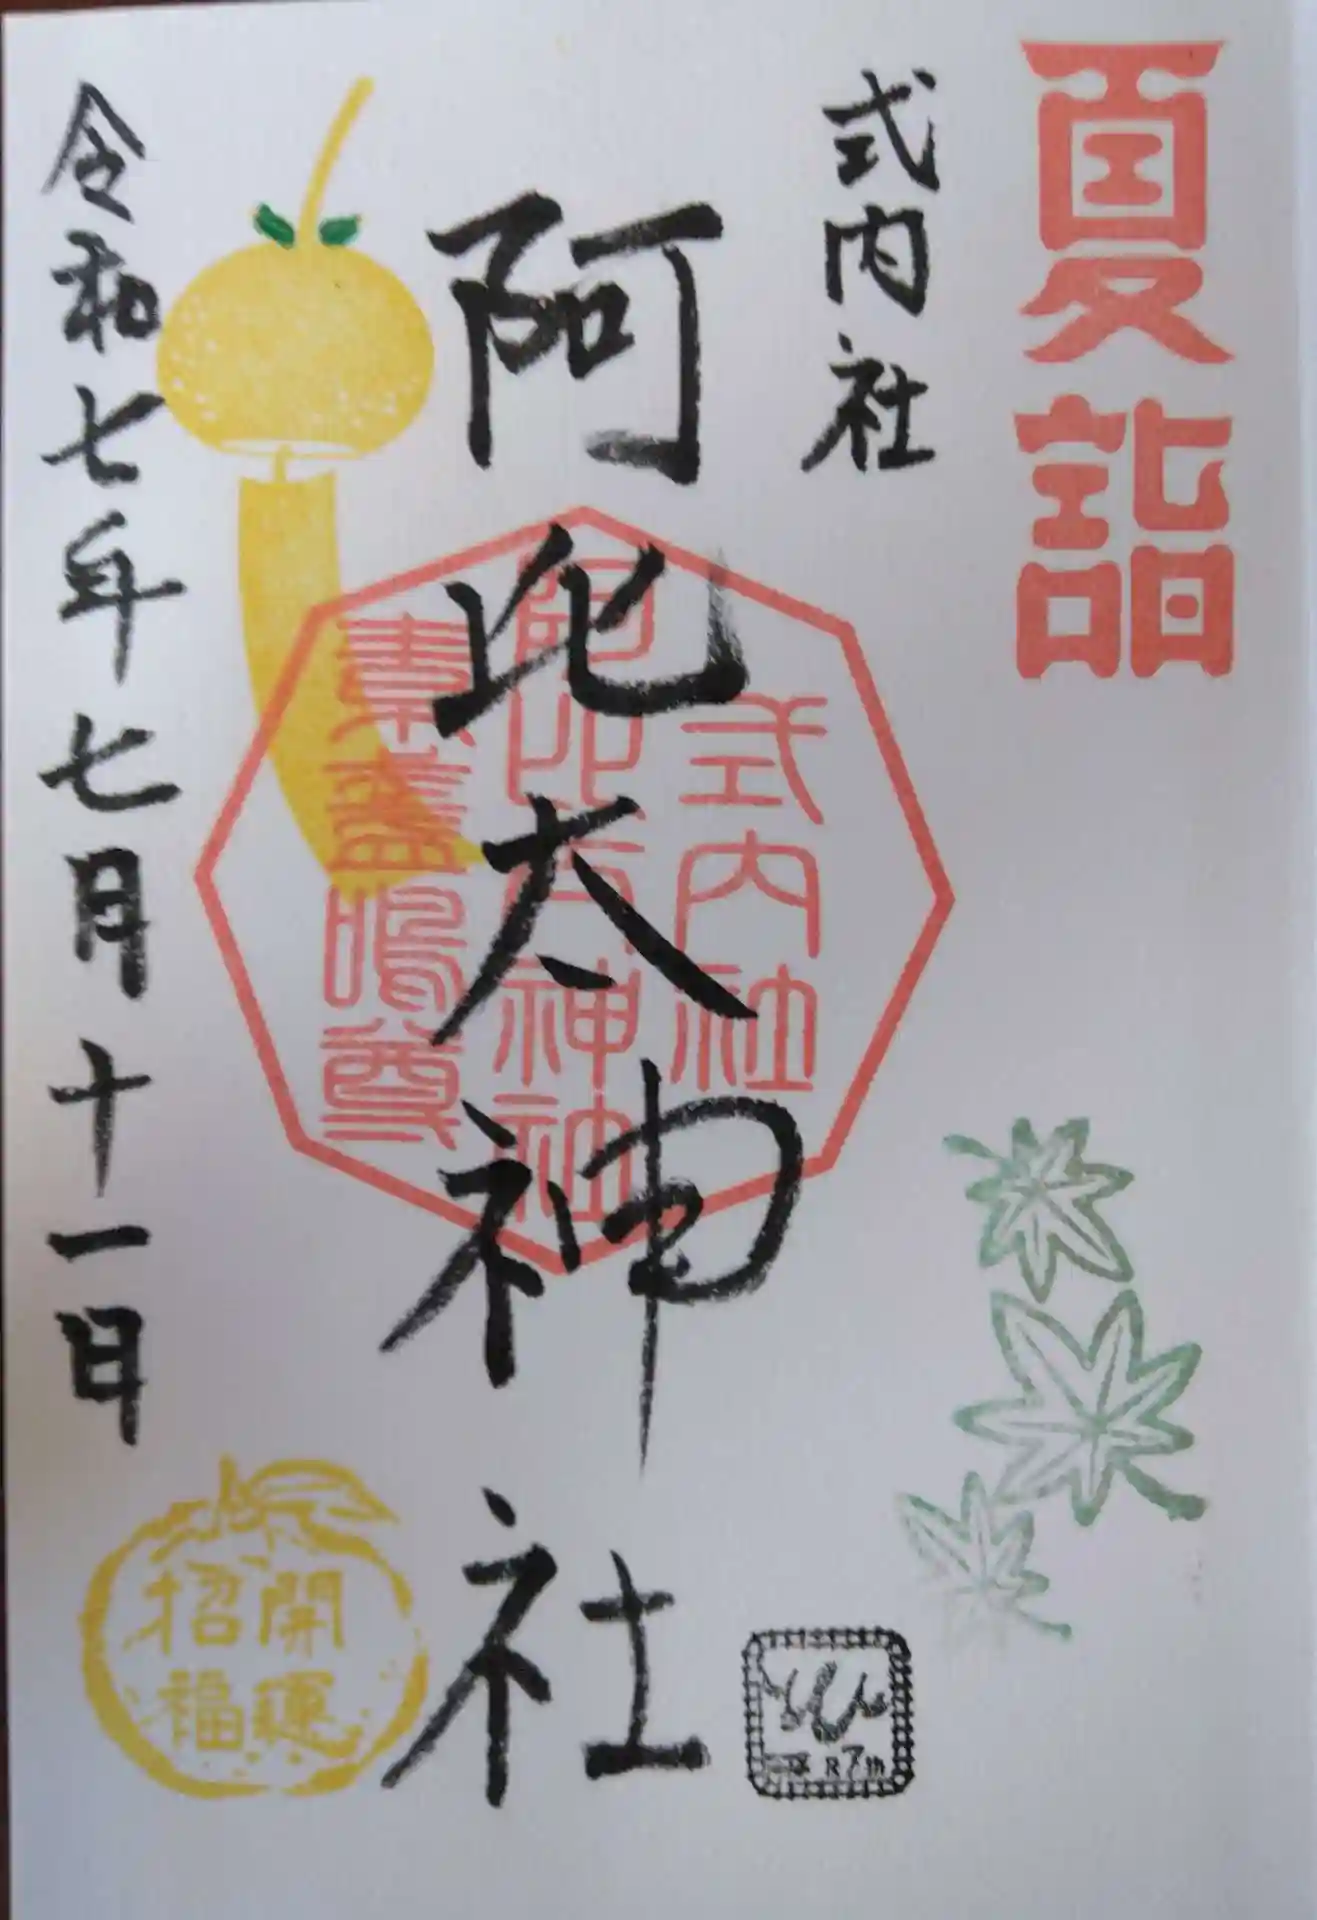 夏詣
式内社
阿比太神社
式内社
阿比太神社
素盞嗚尊
令和七年七月十一日
開運
招福
R7